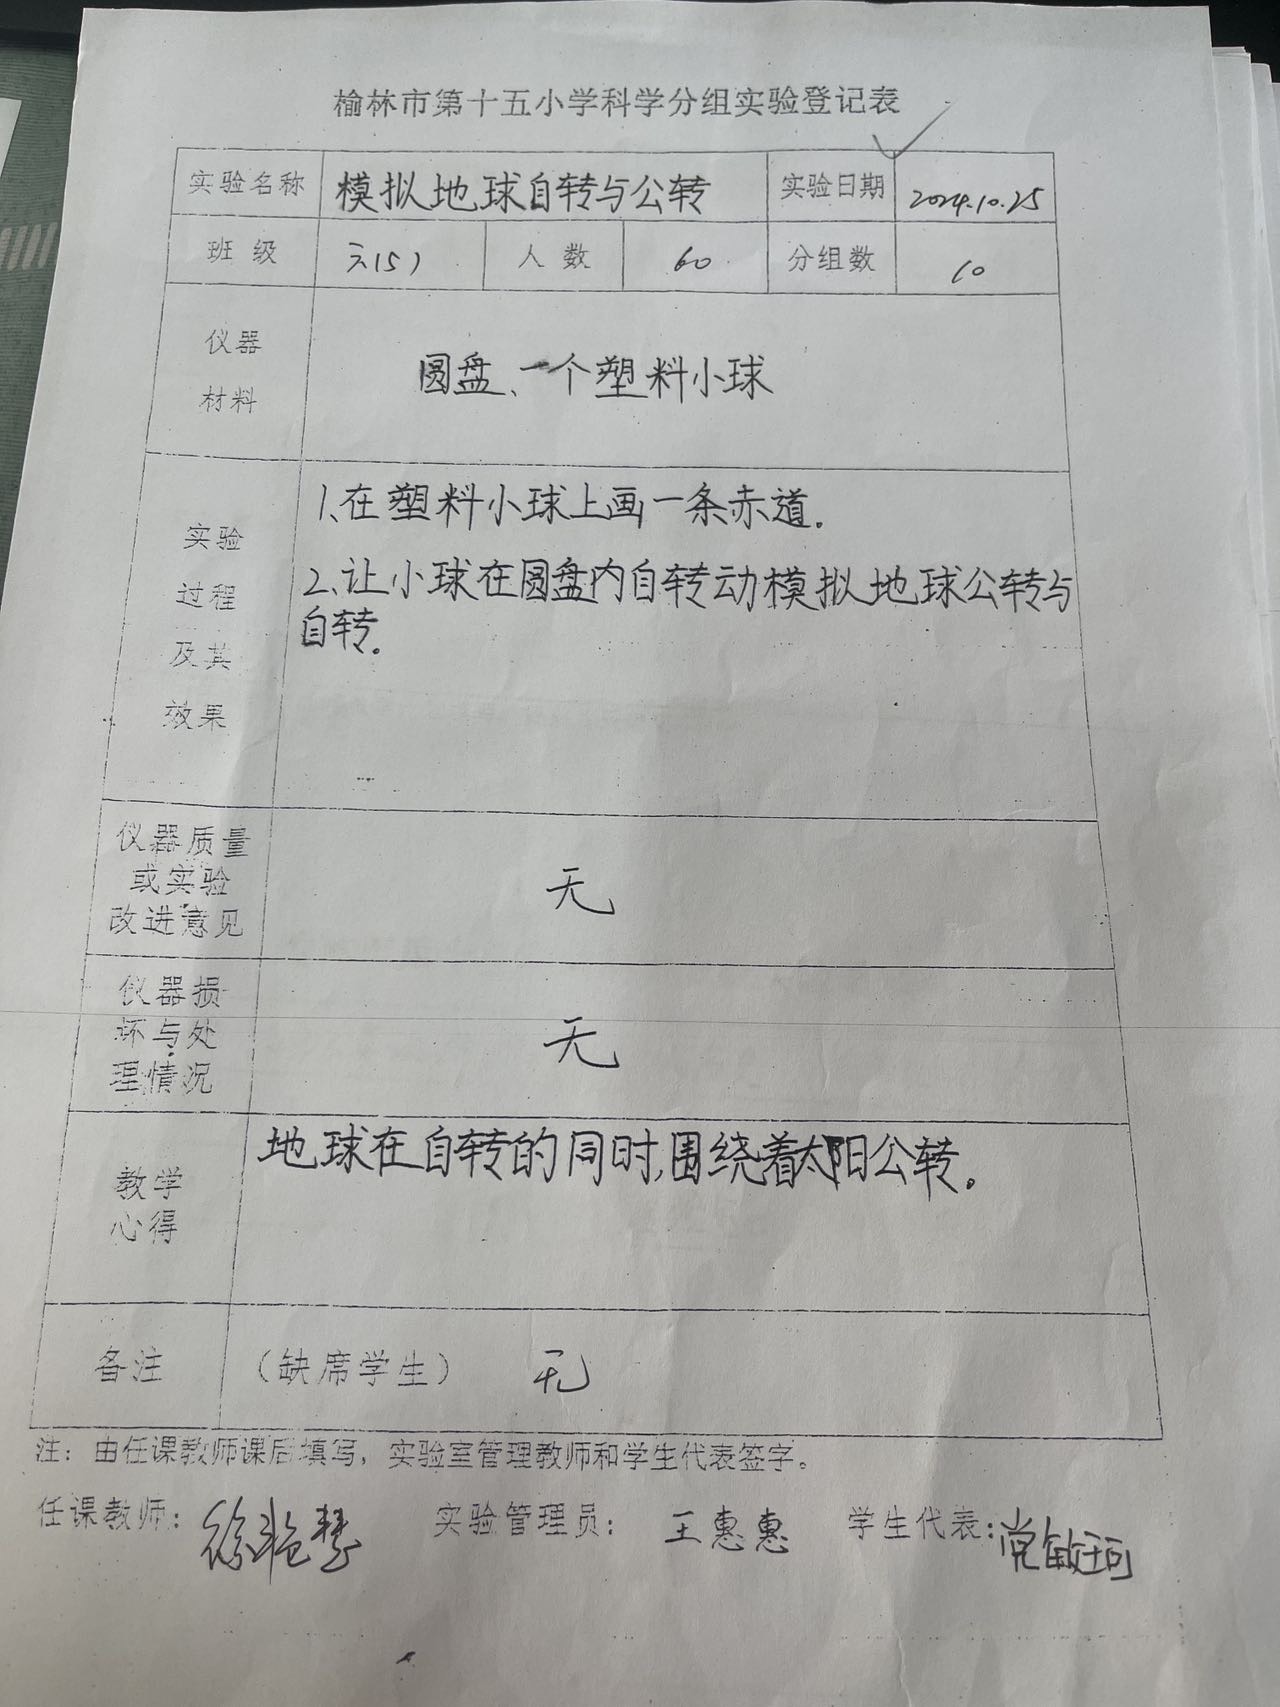 榆林市第十五小学科学分组实验登记表
实验名称 模拟地球自转与公转 实验日期 2024.10.25
班级 六(5) 人数 60 分组数 10
仪器
材料
圆盘、一个塑料小球
实验
过程
及其
效果
1、在塑料小球上画一条赤道。
2、让小球在圆盘内自转动模拟地球公转与
自转。
仪器质量
或实验
改进意见
无
仪器损
坏与处
理情况
无
教学
心得
地球在自转的同时,围绕着太阳公转。
备注 (缺席学生) 无
注：由任课教师课后填写，实验室管理教师和学生代表签字。
任课教师：徐艳慧 实验管理员：王惠惠 学生代表：党敏